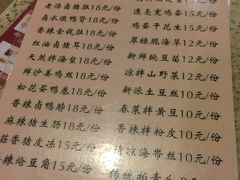 老汤卤猪肚18元/份
香水煨鸭胃18元/份
香辣金钱肚18元/份
红油卤猪耳18元/份
天然拌海蜇18元/份
鲜沙姜鸭丝18元/份
松花蛋鸭卷18元/份
香辣卤鸭脖18元/份
麻辣猪生肠18元/份
蒜香猪皮冻15元/份
辣炝豆角15元/份
元/份
鸡蛋干花生15元/份
翠绿脆海草12元/份
新鲜豌豆苗12元/份
凉拌山野菜12元/份
新派土豆丝10元/份
春菜拌黄豆10元/份
香辣拌粉皮10元/份
清凉海带丝10元/份
8元/份